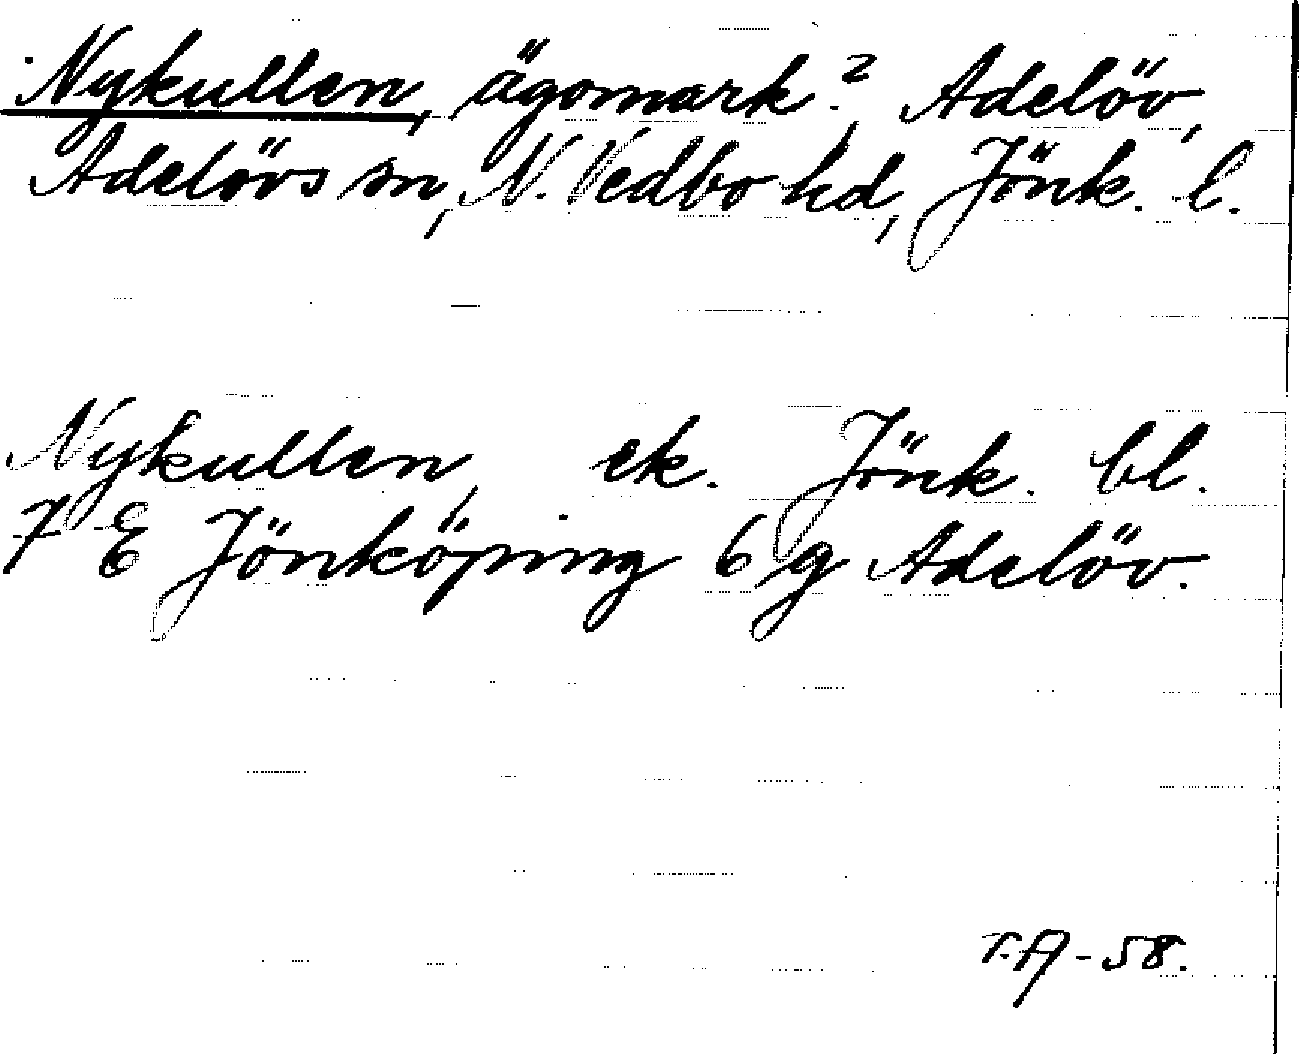 Nykullen, ägomark? Adelöv,
Adelövs sn, N. Vedbo hd, Jönk. l.
Nykullen, ek. Jönk. bl.
7 E Jönköping 6 g Adelöv.
T.A-58.